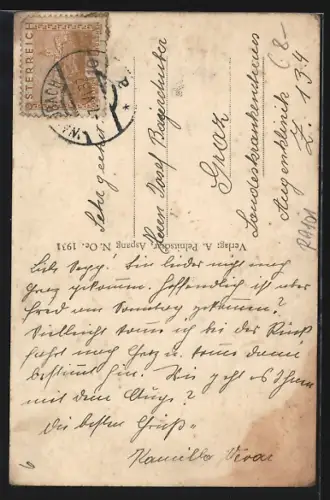 ÖSTERREICH
Herrn Josef
Graz
Landeskrankenhaus
Augenklinik
Verlag: A. Pelnitschar, Aspang N. Oe. 1931
Liebe Sepp! Bin leider nicht nach
Graz gekommen. Hoffentlich ist aber
Fred am Sonntag gekommen?
Vielleicht komme ich bei der Rück
fahrt nach Graz u. komme dann
bestimmt hin. Wie geht es Ihnen
mit dem Auge?
Die besten Grüße
Kamilla